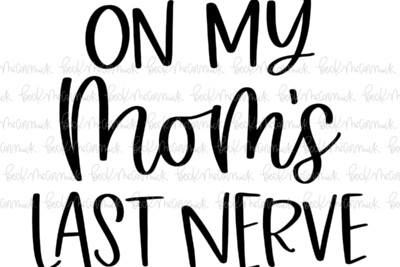 ON MY
Mom's
LAST NERVE